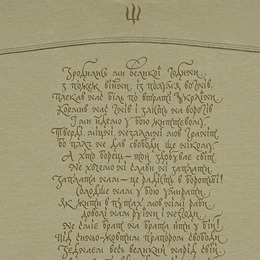 Зродились ми великої години,
З пожеж війни, із полум'я вогнів,
Плекав нас біль по втраті України,
Кормив нас гнів і злість на ворогів.
І ми йдемо у бою життєвому,
Тверді, міцні, незламні мов граніт,
Бо плач не дав свободи ще нікому,
А хто борець – той здобуває світ.
Не хочемо ні слави ні заплати,
Заплата нам – це радість в боротьбі!
Солодше нам у бою умирати,
Як жити в путах, мов німі раби.
Доволі нам руїни і незгоди,
Не сміє брат на брата йти у бій!
Під синьо-жовтим прапором свободи
З'єднаєм весь великий нарід свій.